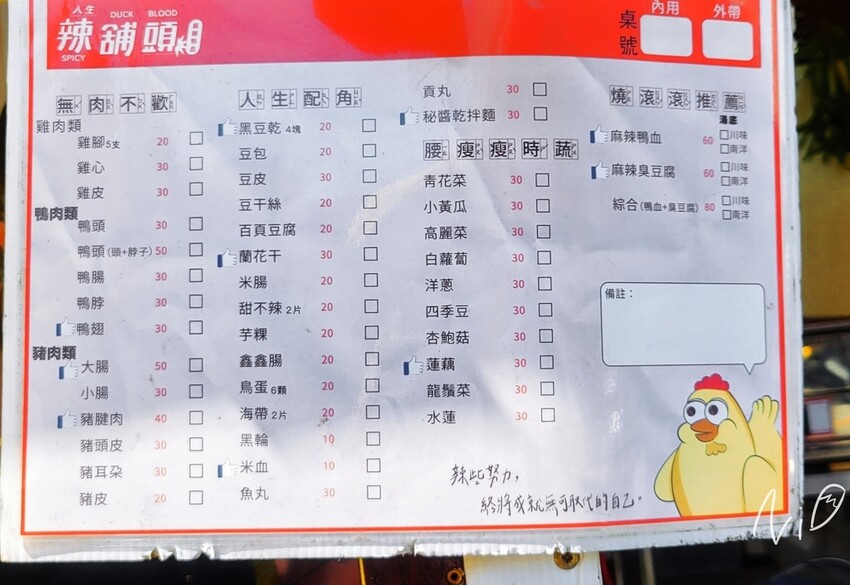 人生 DUCK BLOOD
辣舖頭
SPICY
桌號
內用
外帶
無肉不歡
雞肉類
雞腳5支 20
雞心 30
雞皮 30
鴨肉類
鴨頭 30
鴨頭(頭+脖子) 50
鴨腸 30
鴨脖 30
鴨翅 30
豬肉類
大腸 50
小腸 30
豬腱肉 40
豬頭皮 30
豬耳朶 30
豬皮 20
人生配角
黑豆乾 4塊 20
豆包 20
豆皮 20
豆干絲 20
百頁豆腐 20
蘭花干 30
米腸 20
甜不辣 2片 20
芋粿 20
鑫鑫腸 20
鳥蛋 6顆 20
海帶 2片 20
黑輪 10
米血 10
魚丸 30
貢丸 30
秘醬乾拌麵 30
腰瘦瘦時蔬
青花菜 30
小黃瓜 30
高麗菜 30
白蘿蔔 30
洋蔥 30
四季豆 30
杏鮑菇 30
蓮藕 30
龍鬚菜 30
水蓮 30
燒滾滾推薦
湯底
麻辣鴨血 60 川味
南洋
麻辣臭豆腐 60 川味
南洋
綜合(鴨血+臭豆腐) 80 川味
南洋
備註：
辣些努力，
終將成就無可取代的自己。
ViVi